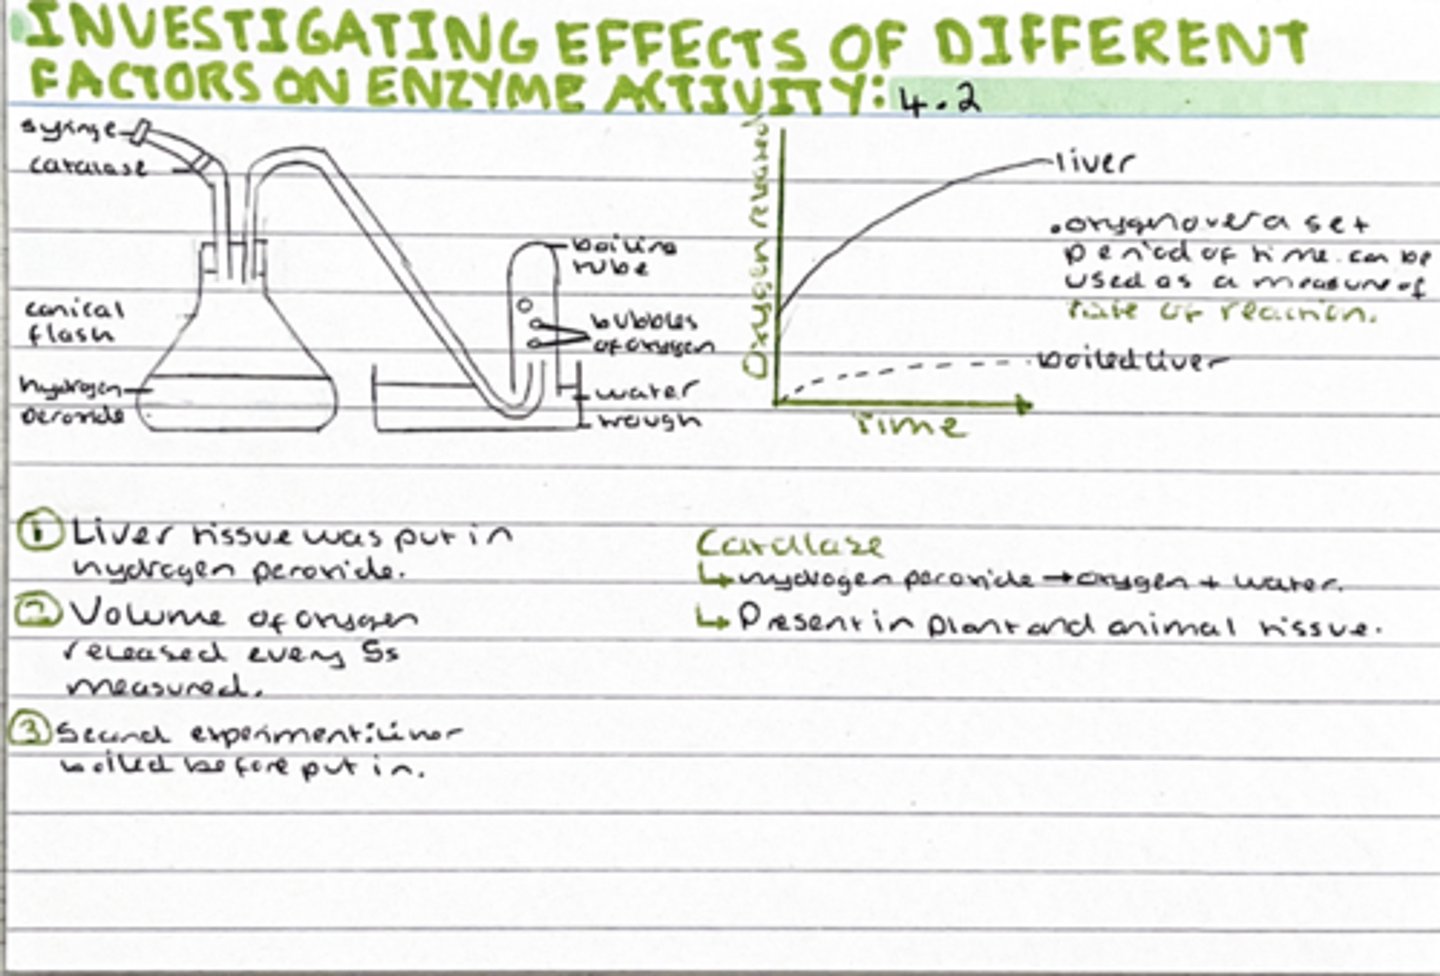 INVESTIGATING EFFECTS OF DIFFERENT
FACTORS ON ENZYME ACTIVITY: 4.2
syringe
catalase
conical
flash
hydrogen
peroxide
boiling
tube
bubbles
of oxygen
water
trough
Oxygen released
Time
liver
boiled liver
.oxygen over a set
period of time can be
used as a measure of
rate of reaction.
① Liver tissue was put in
hydrogen peroxide.
② Volume of oxygen
released every 5s
measured.
③ Second experiment: Liver
boiled before put in.
Catalase
↳ hydrogen peroxide → oxygen + water.
↳ Present in plant and animal tissue.